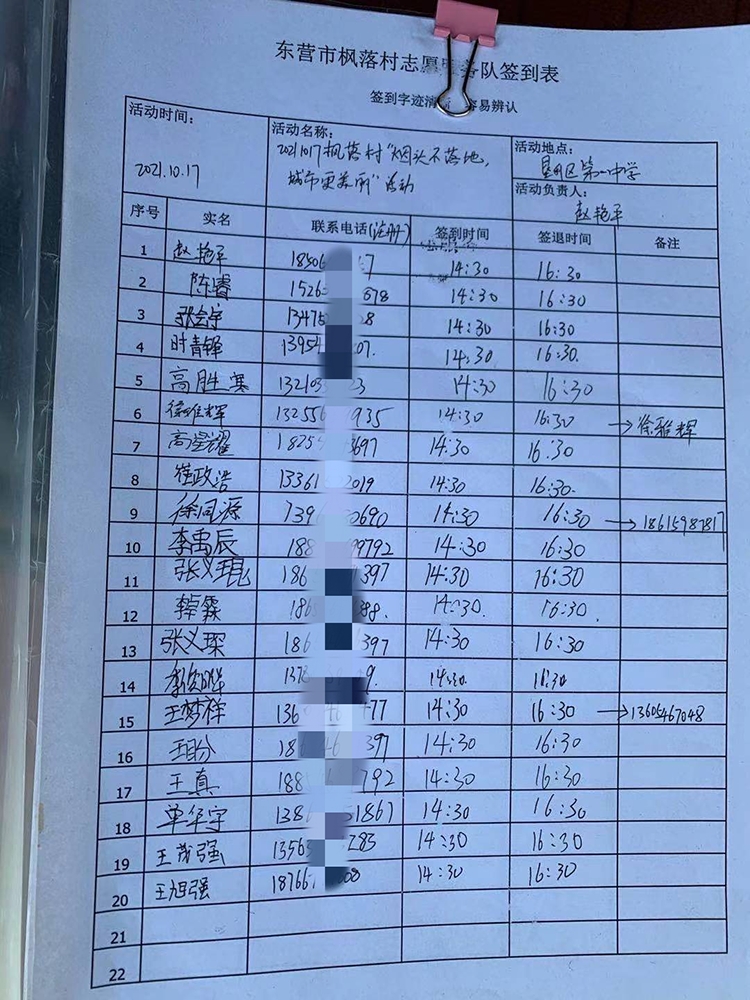 东营市枫落村志愿服务队签到表
签到字迹清晰 容易辨认
活动时间：
2021.10.17
活动名称：
20211017枫落村“烟头不落地，
城市更美丽”活动
活动地点：
垦利区第一中学
活动负责人：
赵艳平
序号 实名 联系电话(注册) 签到时间 签退时间 备注
1 赵艳平 18506 7 14:30 16:30
2 陈睿 1526 878 14:30 16:30
3 张会宇 1347 28 14:30 16:30
4 时青铎 13954 07. 14:30 16:30.
5 高胜寒 13210 3 14:30 16:30
6 徐雅辉 13255 935 14:30 16:30 →徐雅辉
7 1825 3697 14:30 16:30
8 崔政浩 13361 2019 14:30 16:30.
9 徐同源 739 0690 14:30 16:30 →18615987817
10 李禹辰 188 99792 14:30 16:30
11 张义琨 186 397 14:30 16:30
12 186 388. 14:30. 16:30.
13 张义琛 186 397 14:30 16:30
14 137 9. 14:30 16:30
15 王梦梓 136 77 14:30 16:30 →13605467048
16 18 397 14:30 16:30
17 王真 188 792 14:30 16:30
18 单华宇 138 1867 14:30 16:30
19 王茂强 13563 283 14:30 16:30
20 王旭强 18766 08 14:30 16:30
21
22